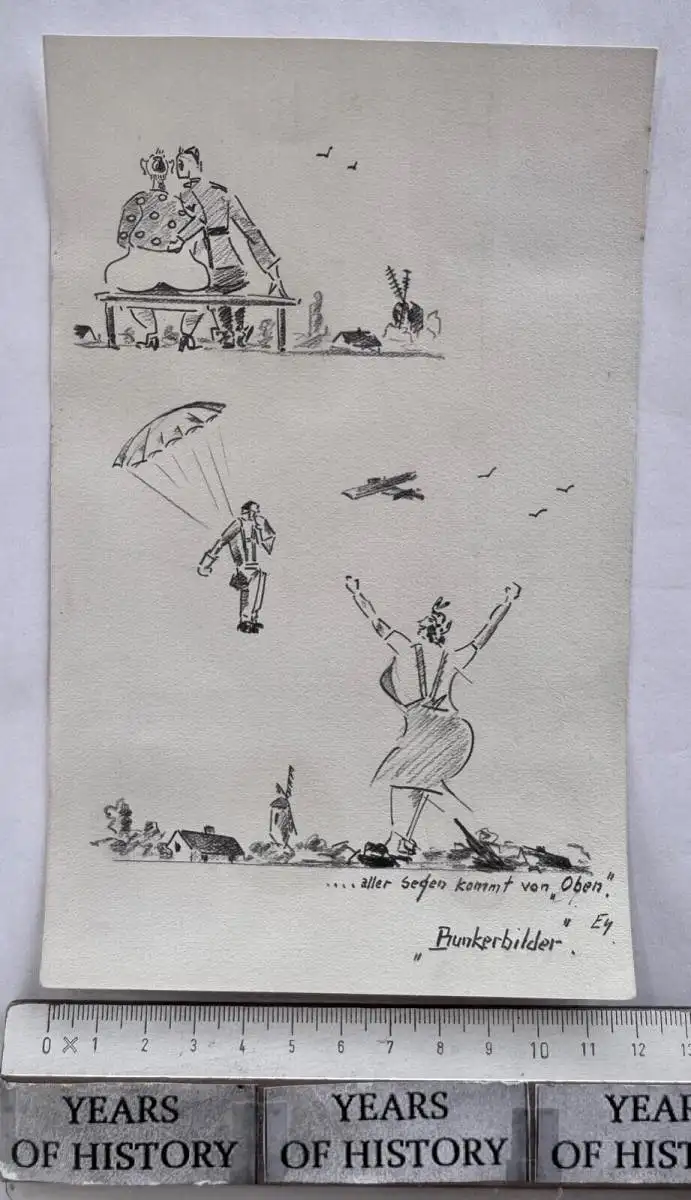 ....aller Segen kommt von „Oben".
Ey.
„Bunkerbilder".
0 1 2 3 4 5 6 7 8 9 10 11 12 13
YEARS OF HISTORY
YEARS OF HISTORY
YEAR
OF HIST